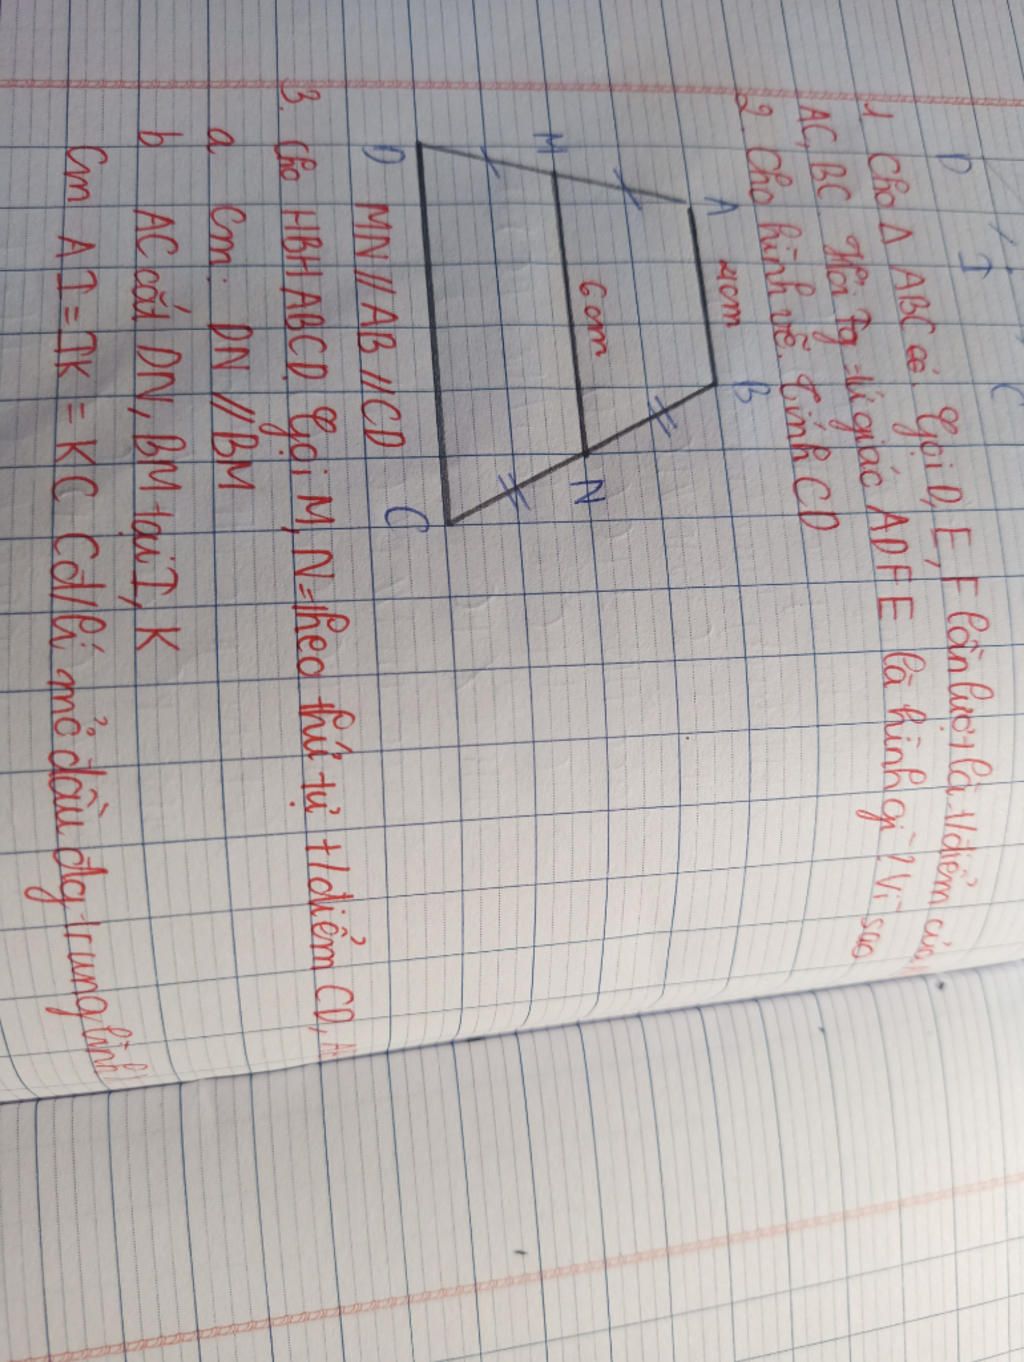 D I C
1 Cho Δ ABC có. Gọi D, E, F lần lượt là t/điểm của
AC, BC Hỏi Tg = tứ giác ADFE là hình gì? Vì sao
2. Cho hình vẽ. Tính CD
A 4cm B
M 6cm N
D C
MN // AB // CD
3. Cho HBH ABCD Gọi M, N = theo thứ tự t/điểm CD, A
a Cm: DN // BM
b AC cắt DN, BM tại I, K
Cm AI = IK = KC Cđ/lí mở đầu đg trung bình